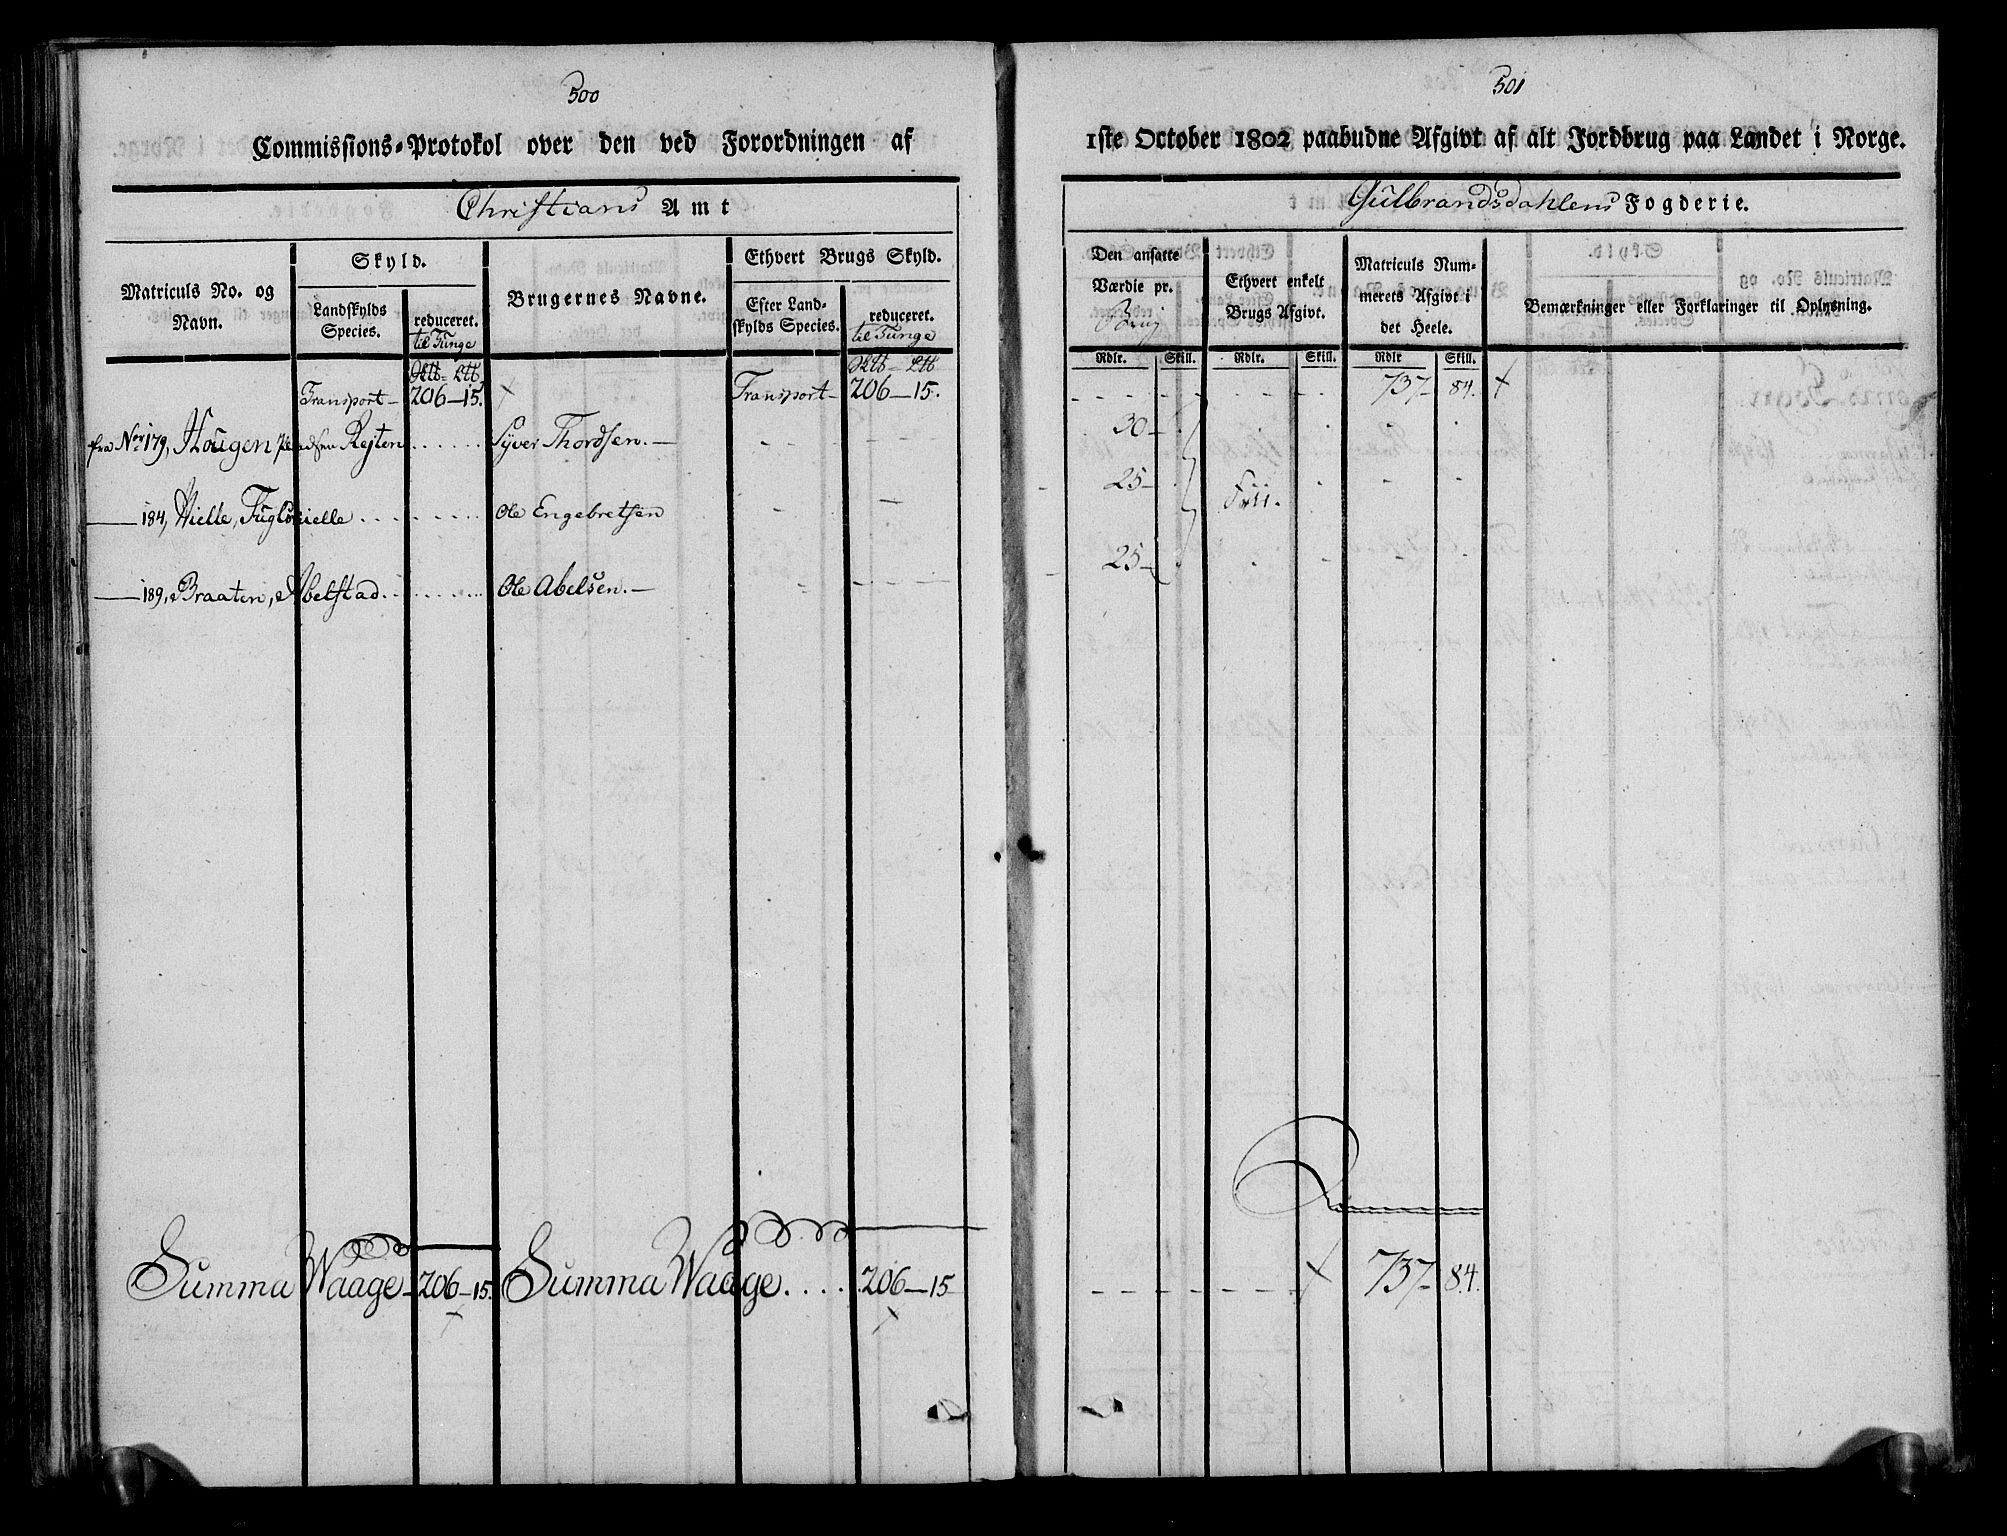 500
Commissions-Protokol over den ved Forordningen af
Christians Amt
Matriculs No. og Navn.
Skyld.
Landskylds Species.
reduceret. til Tunge
Brugernes Navne.
Ethvert Brugs Skyld.
Efter Landskylds Species.
reduceret. til Tunge
Transport - 206 - 15. Transport - 206 - 15.
fra No. 179, Hougen pladsen Rejten Syver Thordsen.
184, Hielle, Fuglehielle Ole Engebretsen
189, Braaten, Abelstad Ole Abelsen.
Summa Waage 206 - 15. Summa Waage 206 - 15
501
1ste October 1802 paabudne Afgivt af alt Jordbrug paa Landet i Norge.
Gulbrandsdahlens Fogderie.
Den ansatte Værdie pr. Brug
Ethvert enkelt Brugs Afgivt.
Matriculs Nummerets Afgivt i det Heele.
Bemærkninger eller Forklaringer til Oplysning.
Rdlr. Skill. Rdlr. Skill. Rdlr Skill.
737 - 84.
30 -
25 - Frii.
25 -
Summa
737 - 84.